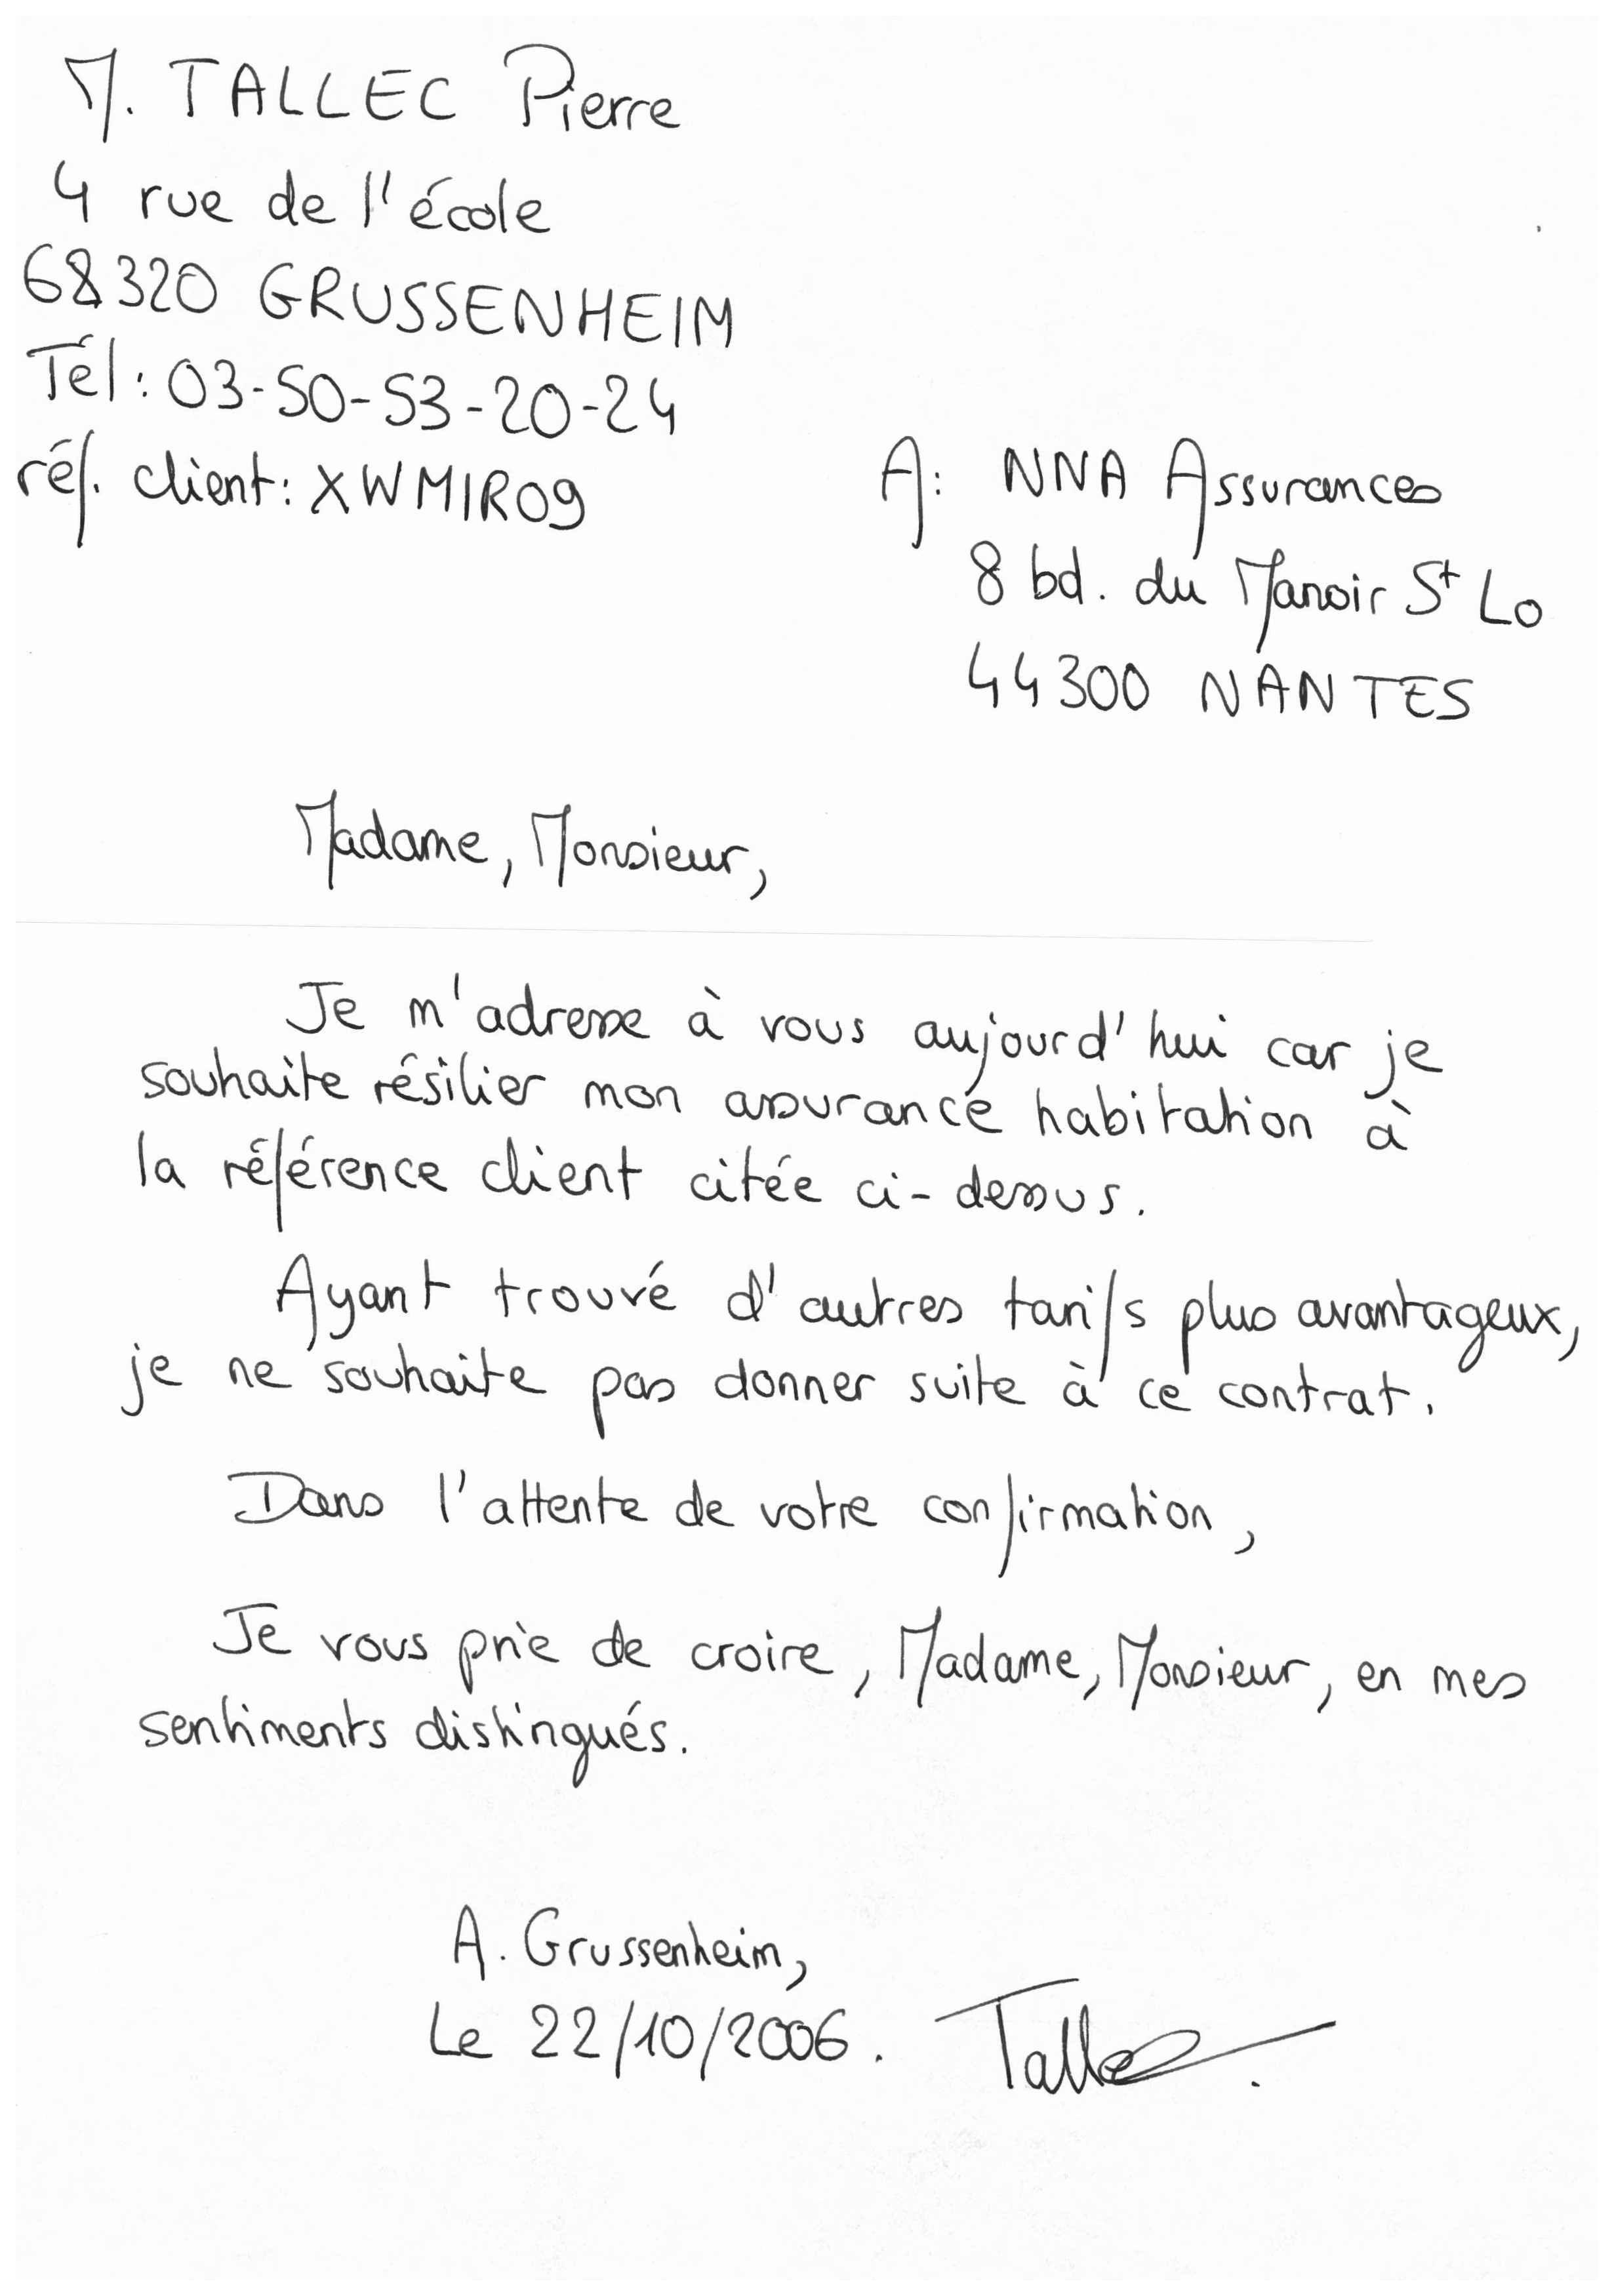 M. TALLEC Pierre
4 rue de l'école
68320 GRUSSENHEIM
Tél : 03-50-53-20-24
réf. client : XWMIR09
A : NNA Assurances
8 bd. du Manoir St Lo
44300 NANTES
Madame, Monsieur,
Je m'adresse à vous aujourd'hui car je
souhaite résilier mon assurance habitation à
la référence client citée ci-dessus.
Ayant trouvé d'autres tarifs plus avantageux,
je ne souhaite pas donner suite à ce contrat.
Dans l'attente de votre confirmation,
Je vous prie de croire, Madame, Monsieur, en mes
sentiments distingués.
A. Grussenheim,
Le 22/10/2006.
Tallec